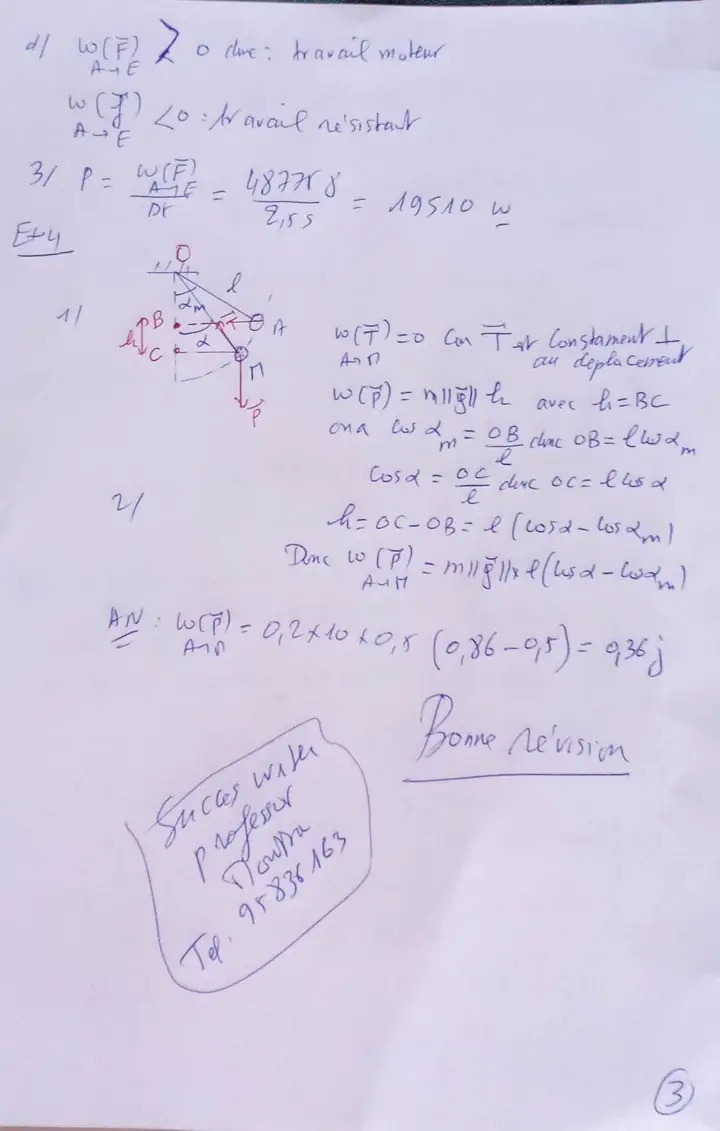 d/ W(F) A→E > 0 donc : travail moteur
W(f) A→E <0 : travail résistant
3/ P = W(F) A→E / Dt = 48775 J / 2,5 s = 19510 W
Ex4
O
l
αm
1/ B T A
h α
C M
P
W(T) A→M = 0 Car T est constament ⊥
au deplacement
W(P) = m||g|| h avec h = BC
ona cos αm = OB/l donc OB = l cos αm
cos α = OC/l donc OC = l cos α
2/ h = OC - OB = l (cosα - cosαm)
Donc W(P) A→M = m||g|| × l (cosα - cosαm)
AN : W(P) A→M = 0,2 × 10 × 0,5 (0,86 - 0,5) = 0,36 j
Bonne révision
Succes with
professur
Tel. 95836163
3